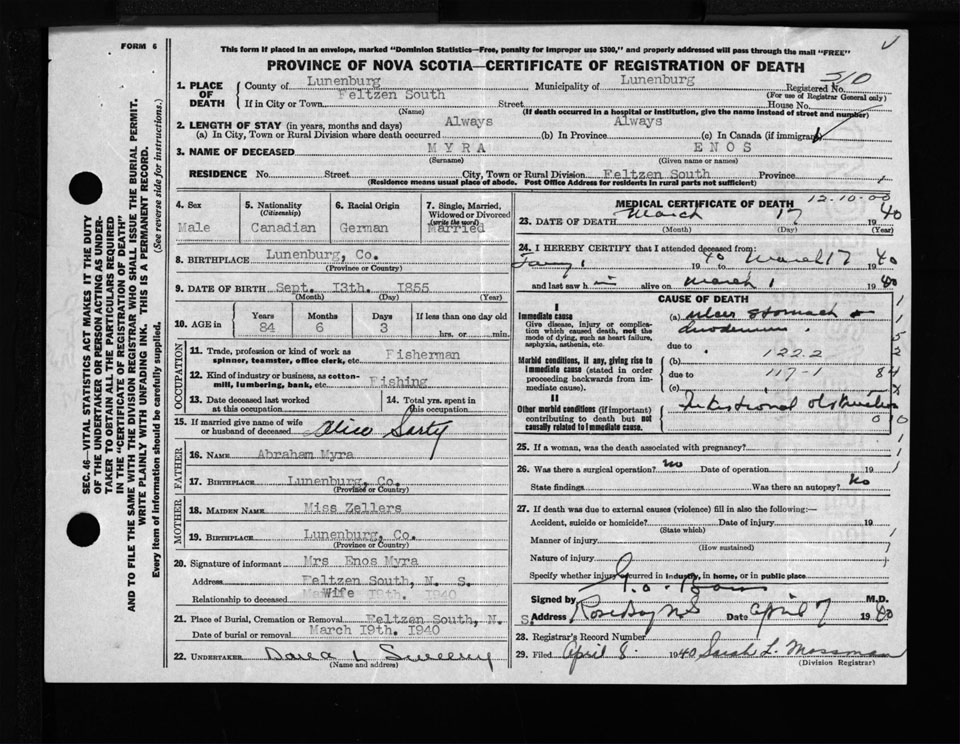 FORM 6
This form if placed in an envelope, marked "Dominion Statistics—Free, penalty for improper use $300," and properly addressed will pass through the mail "FREE"
PROVINCE OF NOVA SCOTIA—CERTIFICATE OF REGISTRATION OF DEATH
510
1. PLACE OF DEATH
County of Lunenburg Municipality of Lunenburg Registered No.
(For use of Registrar General only)
If in City or Town Feltzen South Street House No.
(Name) (If death occurred in a hospital or institution, give the name instead of street and number)
2. LENGTH OF STAY (in years, months and days)
(a) In City, Town or Rural Division where death occurred Always (b) In Province Always (c) In Canada (if immigrant)
3. NAME OF DECEASED MYRA ENOS
(Surname) (Given name or names)
RESIDENCE No. Street City, Town or Rural Division Feltzen South Province
(Residence means usual place of abode. Post Office Address for residents in rural parts not sufficient)
4. Sex Male
5. Nationality (Citizenship) Canadian
6. Racial Origin German
7. Single, Married, Widowed or Divorced (write the word) Married
8. BIRTHPLACE Lunenburg, Co.
(Province or Country)
9. DATE OF BIRTH Sept. 13th. 1855
(Month) (Day) (Year)
10. AGE in Years 84 Months 6 Days 3 If less than one day old hrs. or min.
OCCUPATION
11. Trade, profession or kind of work as spinner, teamster, office clerk, etc. Fisherman
12. Kind of industry or business, as cotton-mill, lumbering, bank, etc. Fishing
13. Date deceased last worked at this occupation
14. Total yrs. spent in this occupation
15. If married give name of wife or husband of deceased Alice Sarty
FATHER
16. NAME Abraham Myra
17. BIRTHPLACE Lunenburg, Co.
(Province or Country)
MOTHER
18. MAIDEN NAME Miss Zellers
19. BIRTHPLACE Lunenburg, Co.
(Province or Country)
20. Signature of informant Mrs Enos Myra
Address Feltzen South, N. S.
Relationship to deceased Wife 19th. 1940
21. Place of Burial, Cremation or Removal Feltzen South, N. S.
Date of burial or removal March 19th. 1940
22. UNDERTAKER
(Name and address)
MEDICAL CERTIFICATE OF DEATH 12-10-00
23. DATE OF DEATH March 17 1940
(Month) (Day) (Year)
24. I HEREBY CERTIFY that I attended deceased from:
1940 to March 17 1940
and last saw him alive on March 1 1940
CAUSE OF DEATH
I
Immediate cause
Give disease, injury or complication which caused death, not the mode of dying, such as heart failure, asphyxia, asthenia, etc.
(a) ulcer stomach &
duodenum
due to
Morbid conditions, if any, giving rise to immediate cause (stated in order proceeding backwards from immediate cause).
(b) 122.2
due to 117-1
(c)
II
Other morbid conditions (if important) contributing to death but not causally related to immediate cause.
Intestional obstruction
25. If a woman, was the death associated with pregnancy?
26. Was there a surgical operation? no Date of operation 19
State findings Was there an autopsy? No
27. If death was due to external causes (violence) fill in also the following:—
Accident, suicide or homicide? Date of injury 19
(State which)
Manner of injury
(How sustained)
Nature of injury
Specify whether injury occurred in industry, in home, or in public place
Signed by M.D.
Address Rose Bay NS Date April 7 1940
28. Registrar's Record Number
29. Filed April 8. 1940 Sarah L. Mossman
(Division Registrar)
SEC. 46—VITAL STATISTICS ACT MAKES IT THE DUTY
OF THE UNDERTAKER OR PERSON ACTING AS UNDER-
TAKER TO OBTAIN ALL THE PARTICULARS REQUIRED
IN THE "CERTIFICATE OF REGISTRATION OF DEATH"
AND TO FILE THE SAME WITH THE DIVISION REGISTRAR WHO SHALL ISSUE THE BURIAL PERMIT.
WRITE PLAINLY WITH UNFADING INK. THIS IS A PERMANENT RECORD.
Every item of information should be carefully supplied. (See reverse side for instructions.)